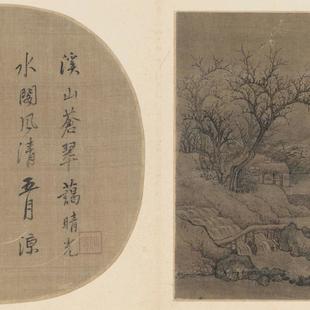 溪山蒼翠藹晴光
水閣風清五月涼